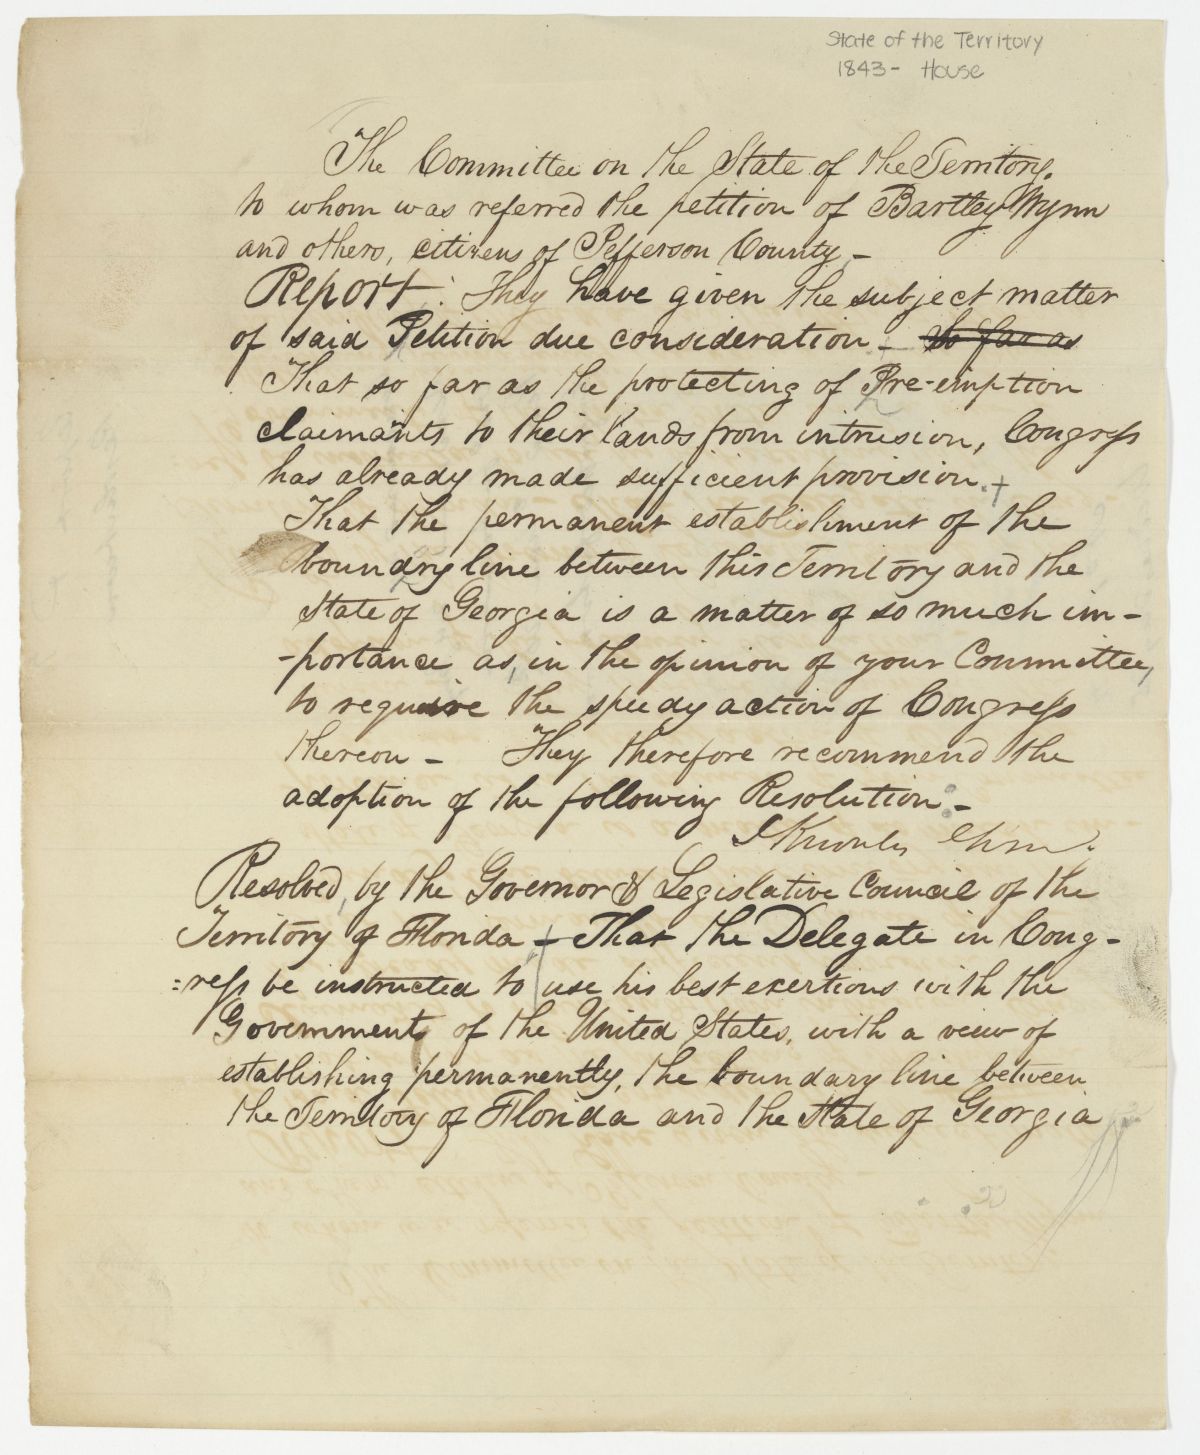 State of the Territory
1843- House
The Committee on the State of the Territory.
to whom was referred the petition of Bartley Wynn
and others, citizens of Jefferson County -
Report: They have given the subject matter
of said Petition due consideration - so far as
That so far as the protecting of Pre-emption
claimants to their lands from intrusion, Congress
has already made sufficient provision. +
That the permanent establishment of the
boundry line between this Territory and the
State of Georgia is a matter of so much im-
-portance as, in the opinion of your Committee,
to require the speedy action of Congress
thereon - They therefore recommend the
adoption of the following Resolution -
Knowles Chm.
Resolved, by the Governor & Legislative Council of the
Territory of Florida - That the Delegate in Cong-
=ress be instructed to use his best exertions with the
Government of the United States, with a view of
establishing permanently, the boundary line between
the Territory of Florida and the State of Georgia